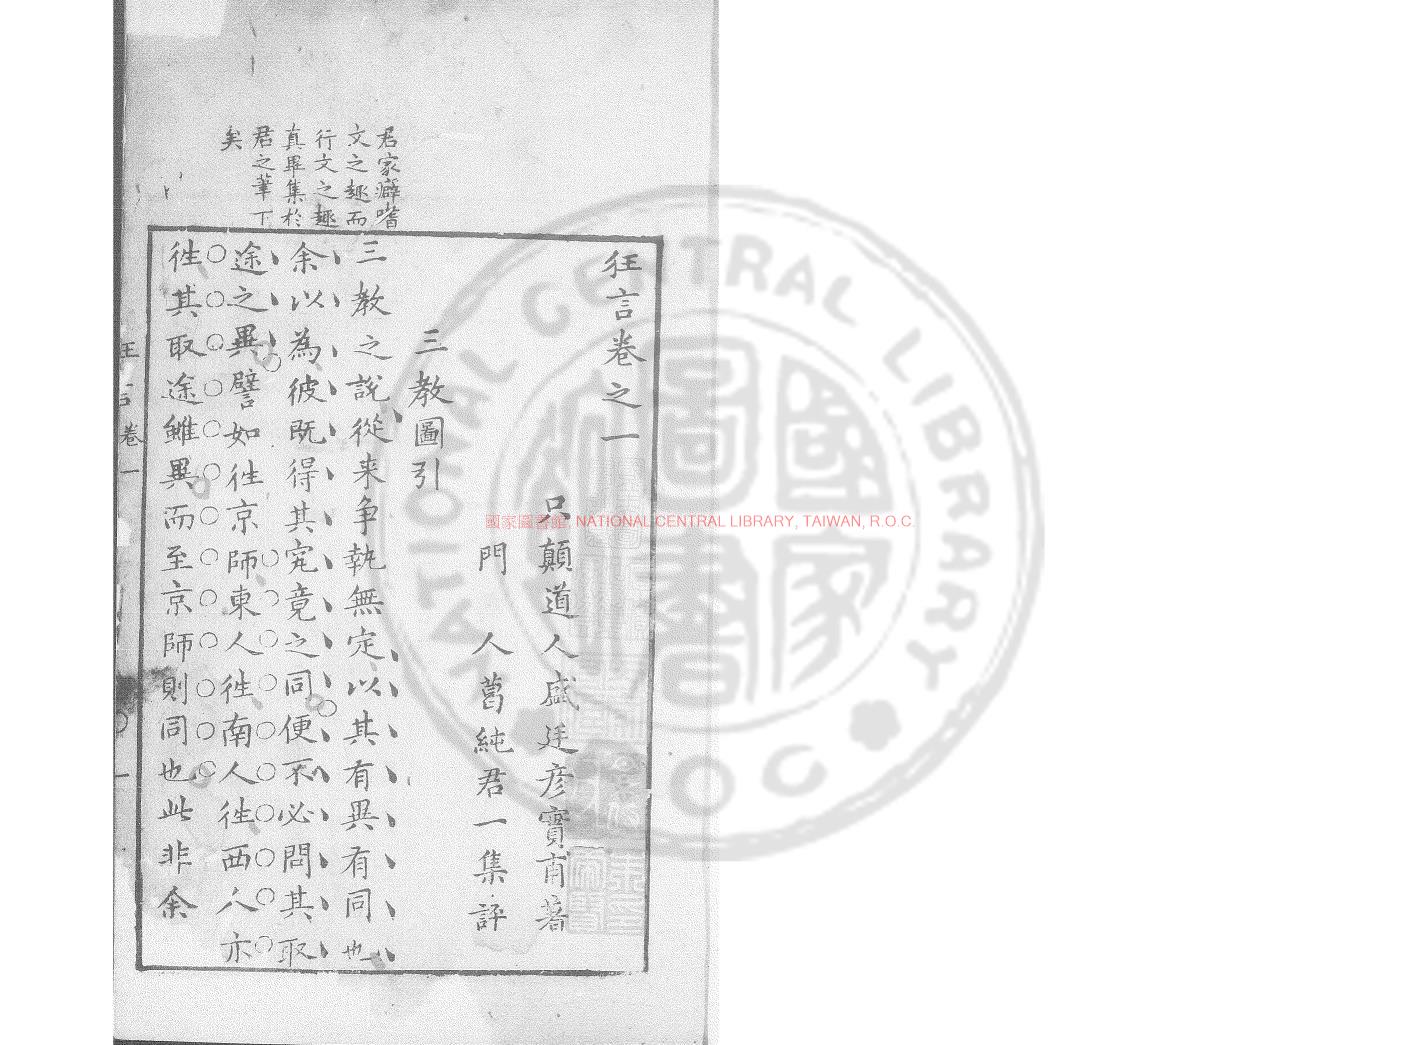 狂言卷之一
只顛道人盛廷彦寶甫著
門人葛純君一集評
三教圖引
三教之說從来争執無定以其有異有同也
余以為彼既得其究竟之同便不必問其取
途之異譬如徃京師東人徃南人徃西人亦
徃其取途雖異而至京師則同也此非余
君家癖嗜
文之趣而
行文之趣
真畢集於
君之筆下
矣
卷一
一
國家圖書館 NATIONAL CENTRAL LIBRARY, TAIWAN, R.O.C.
NATIONAL CENTRAL LIBRARY
R O C
國家圖書館